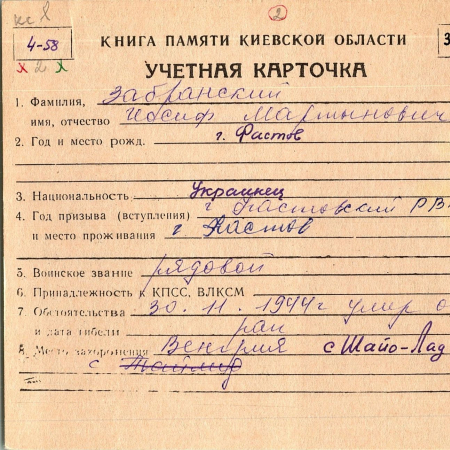 2
4-58
х 2 х
КНИГА ПАМЯТИ КИЕВСКОЙ ОБЛАСТИ
3
УЧЕТНАЯ КАРТОЧКА
1. Фамилия, Забранский
имя, отчество Иосиф Мартынович
2. Год и место рожд. г. Фастов
3. Национальность Украинец
4. Год призыва (вступления) г Фастовский РВ
и место проживания г Фастов
5. Воинское звание рядовой
6. Принадлежность к КПСС, ВЛКСМ
7. Обстоятельства 30. 11. 1944г умер о
и дата гибели ран
8. Место захоронения Венгрия с Шайо-Лад
с